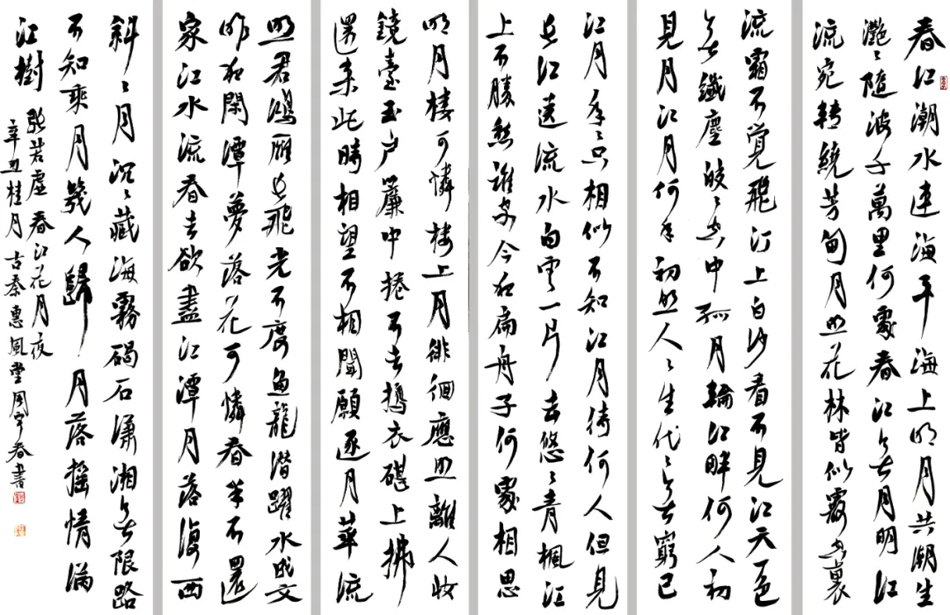 春江潮水連海平海上明月共潮生
灩〻隨波千萬里何處春江無月明江
流宛轉繞芳甸月照花林皆似霰空裏
流霜不覺飛汀上白沙看不見江天一色
無纖塵皎〻空中孤月輪江畔何人初
見月江月何年初照人〻生代〻無窮已
江月年〻只相似不知江月待何人但見
長江送流水白雲一片去悠〻青楓江
上不勝愁誰家今夜扁舟子何處相思
明月樓可憐樓上月徘徊應照離人妝
鏡臺玉戶簾中捲不去擣衣砧上拂
還來此時相望不相聞願逐月華流
照君鴻雁長飛光不度魚龍潛躍水成文
昨夜閑潭夢落花可憐春半不還
家江水流春去欲盡江潭月落復西
斜〻月沉〻藏海霧碣石瀟湘無限路
不知乘月幾人歸月落搖情滿
江樹
張若虛春江花月夜
辛丑桂月古秦惠風堂周宇春書